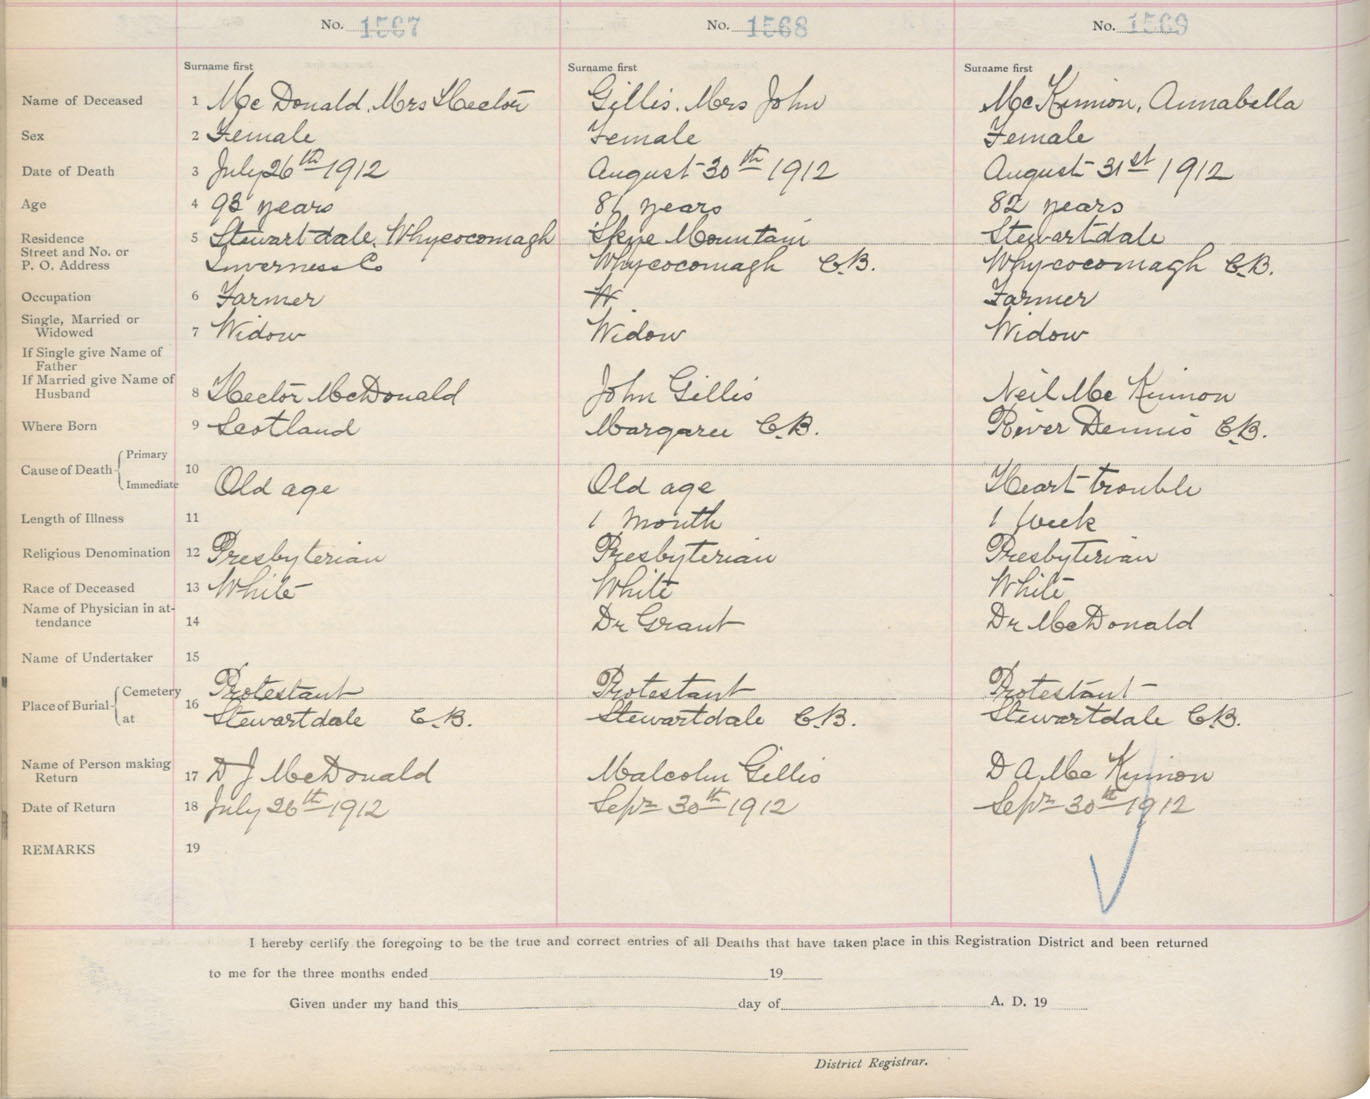 No. 1567 No. 1568 No. 1569
Surname first Surname first Surname first
Name of Deceased 1 McDonald, Mrs Hector Gillis. Mrs John McKinnon, Annabella
Sex 2 Female Female Female
Date of Death 3 July 26th 1912 August 30th 1912 August 31st 1912
Age 4 93 years 81 years 82 years
Residence 5 Stewartdale, Whycocomagh Skye Mountain Stewartdale
Street and No. or
P. O. Address Inverness Co Whycocomagh C.B. Whycocomagh C.B.
Occupation 6 Farmer Farmer
Single, Married or
Widowed 7 Widow Widow Widow
If Single give Name of
Father
If Married give Name of
Husband 8 Hector McDonald John Gillis Neil McKinnon
Where Born 9 Scotland Margaree C.B. River Dennis C.B.
Cause of Death Primary
Immediate 10 Old age Old age Heart trouble
Length of Illness 11 1 month 1 week
Religious Denomination 12 Presbyterian Presbyterian Presbyterian
Race of Deceased 13 White White White
Name of Physician in at-
tendance 14 Dr Grant Dr McDonald
Name of Undertaker 15
Place of Burial Cemetery 16 Protestant Protestant Protestant
at Stewartdale C.B. Stewartdale C.B. Stewartdale C.B.
Name of Person making
Return 17 D J McDonald Malcolm Gillis D A McKinnon
Date of Return 18 July 26th 1912 Sepr 30th 1912 Sepr 30th 1912
REMARKS 19
I hereby certify the foregoing to be the true and correct entries of all Deaths that have taken place in this Registration District and been returned
to me for the three months ended 19
Given under my hand this day of A. D. 19
District Registrar.